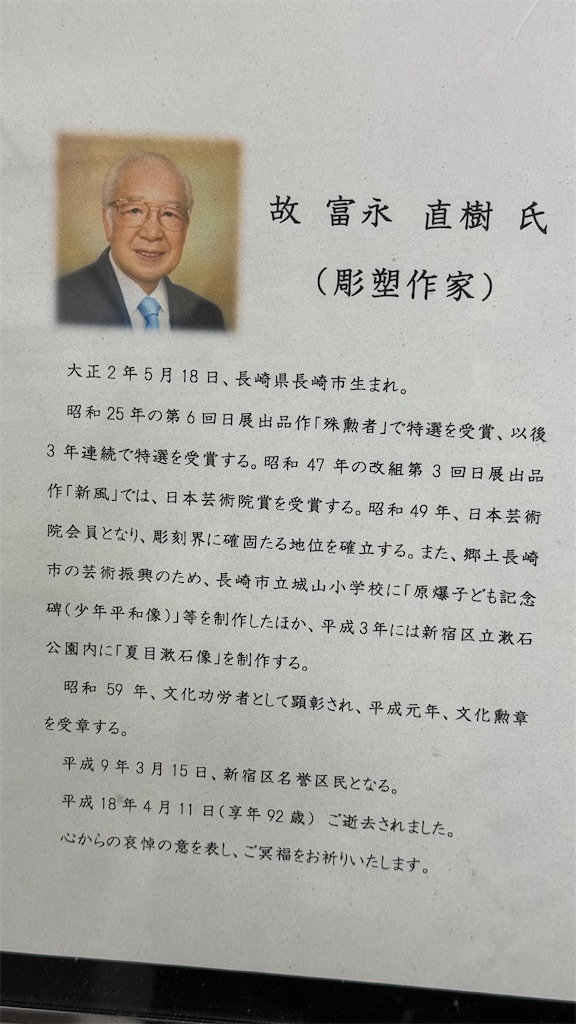 故 富永 直樹 氏
(彫塑作家)
大正2年5月18日、長崎県長崎市生まれ。
昭和25年の第6回日展出品作「殊勲者」で特選を受賞、以後
3年連続で特選を受賞する。昭和47年の改組第3回日展出品
作「新風」では、日本芸術院賞を受賞する。昭和49年、日本芸術
院会員となり、彫刻界に確固たる地位を確立する。また、郷土長崎
市の芸術振興のため、長崎市立城山小学校に「原爆子ども記念
碑(少年平和像)」等を制作したほか、平成3年には新宿区立漱石
公園内に「夏目漱石像」を制作する。
昭和59年、文化功労者として顕彰され、平成元年、文化勲章
を受章する。
平成9年3月15日、新宿区名誉区民となる。
平成18年4月11日(享年92歳) ご逝去されました。
心からの哀悼の意を表し、ご冥福をお祈りいたします。